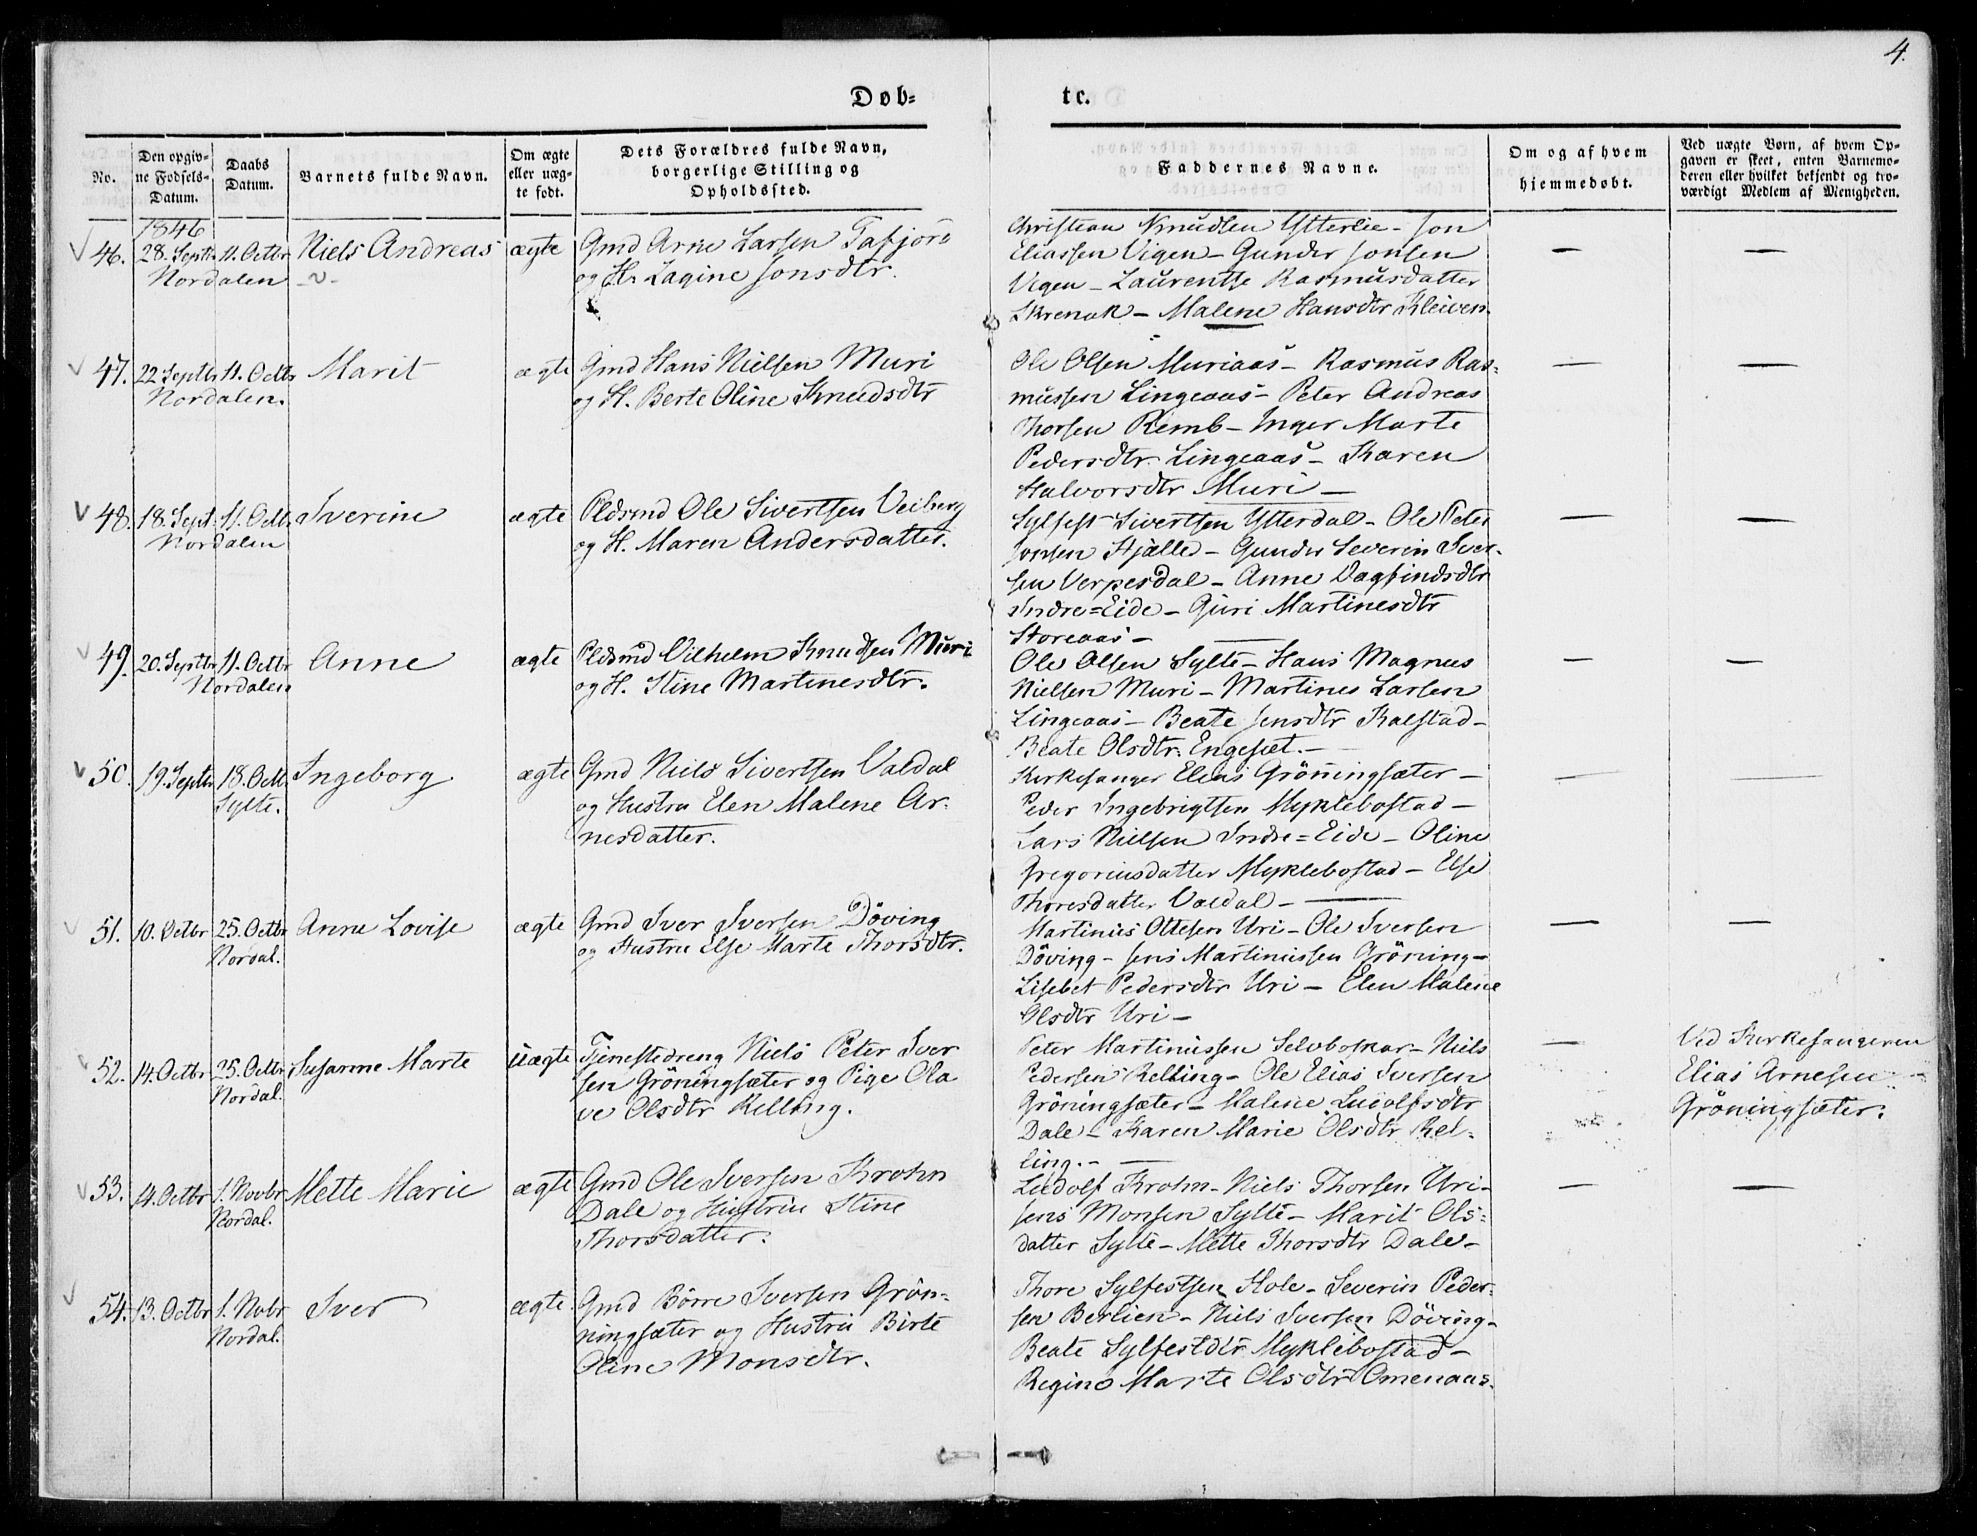 4.
Døb= te.
No.
Den opgiv-
ne Fødsels-
Datum.
Daabs
Datum.
Barnets fulde Navn.
Om ægte
eller uæg-
te født.
Dets Forældres fulde Navn,
borgerlige Stilling og
Opholdssted.
Faddernes Navne.
Om og af hvem
hjemmedøbt.
Ved uægte Børn, af hvem Op-
gaven er skeet, enten Barnemo-
deren eller hvilket bekjendt og tro-
værdigt Medlem af Menigheden.
1846
46. 28. Septbr 11. Octbr Niels Andreas ægte Gmd Arne Larsen Tafjord
Nordalen
og H. Lagine Jonsdtr.
Christian Knudsen Ytterlie - Jon
Eliassen Vigen - Gunder Jonsen
Vigen - Laurentse Rasmusdatter
Skrenak - Malene Hansdtr Kleiven.
— —
47. 22 Septbr 11. Octbr Marit ægte Gmd Hans Nielsen Muri
Nordalen.
og H. Berte Oline Knudsdtr
Ole Olsen Muriaas - Rasmus Ras-
mussen Lingeaas - Peter Andreas
Thorsen Remb - Inger Marte
Pedersdtr Lingeaas - Karen
Halvorsdtr Muri —
— —
48. 18. Sept. 11. Octbr Iverine ægte Pldsmd Ole Sivertsen Veiberg
Nordalen
og H. Maren Andersdatter.
Sylfest Sivertsen Ytterdal - Ole Peter
Jonsen Hjelle - Gunder Severin Iver-
sen Verpesdal - Anne Dagfindsdtr
Indre=Eide - Guri Martinesdtr
Storeaas —
— —
49. 20. Septbr 11. Octbr Anne ægte Pldsmd Vilhelm Knudsen Muri
Nordalen
og H. Stine Martinesdtr.
Ole Olsen Sylte - Hans Magnus
Nielsen Muri - Martines Larsen
Lingeaas - Beate Jensdtr Kalstad -
Beate Olsdtr. Engeset. —
— —
50. 19. Septbr 18. Octbr Ingeborg ægte Gmd Niels Sivertsen Valdal
Sylte.
og Hustru Elen Malene Ar-
nesdatter.
Kirkesanger Elias Gröningsæter —
Peder Ingebrigtsen Myklebostad —
Lars Nielsen Indre=Eide - Oline
Gregoriusdatter Myklebostad - Else
Thoresdatter Valdal —
— —
51. 10. Octbr 25. Octbr Anne Lovise ægte Gmd Iver Iversen Döving
Nordal.
og Hustru Else Marte Thorsdtr.
Martinus Ottesen Uri - Ole Iversen
Döving - Jens Martinussen Gröning -
Lisebet Pedersdtr Uri - Elen Malene
Olsdtr Uri —
— —
52. 14. Octbr 25. Octbr Susanne Marte uægte Tjenestedreng Niels Peter Iver
Nordal.
sen Gröningsæter og Pige Ola
ve Olsdtr Relling.
Peter Martinussen Selboskar - Niels
Pedersen Relling - Ole Elias Iversen
Gröningsæter - Malene Ludolfsdtr
Dale - Karen Marie Olsdtr Rel-
ling. —
—
Ved Kirkesangeren
Elias Arnesen
Gröningsæter.
53. 14. Octbr 1. Novbr Mette Marie ægte Gmd Ole Iversen Krohn
Nordal.
Dale og Hustru Stine
Thorsdatter.
Ludolf Krohn - Niels Thorsen Uri -
Jens Monsen Sylte - Marit Ols-
datter Sylte - Mette Thorsdtr Dale -
— —
54. 13. Octbr 1. Nvbr Iver ægte Gmd Börre Iversen Grön-
Nordal.
ningsæter og Hustru Birte
Oline Monsdtr.
Thore Sylfestsen Hole - Severin Peder-
sen Berlien - Niels Iversen Döving -
Beate Sylfestdtr Myklebostad -
Regine Marte Olsdtr Omenaas.